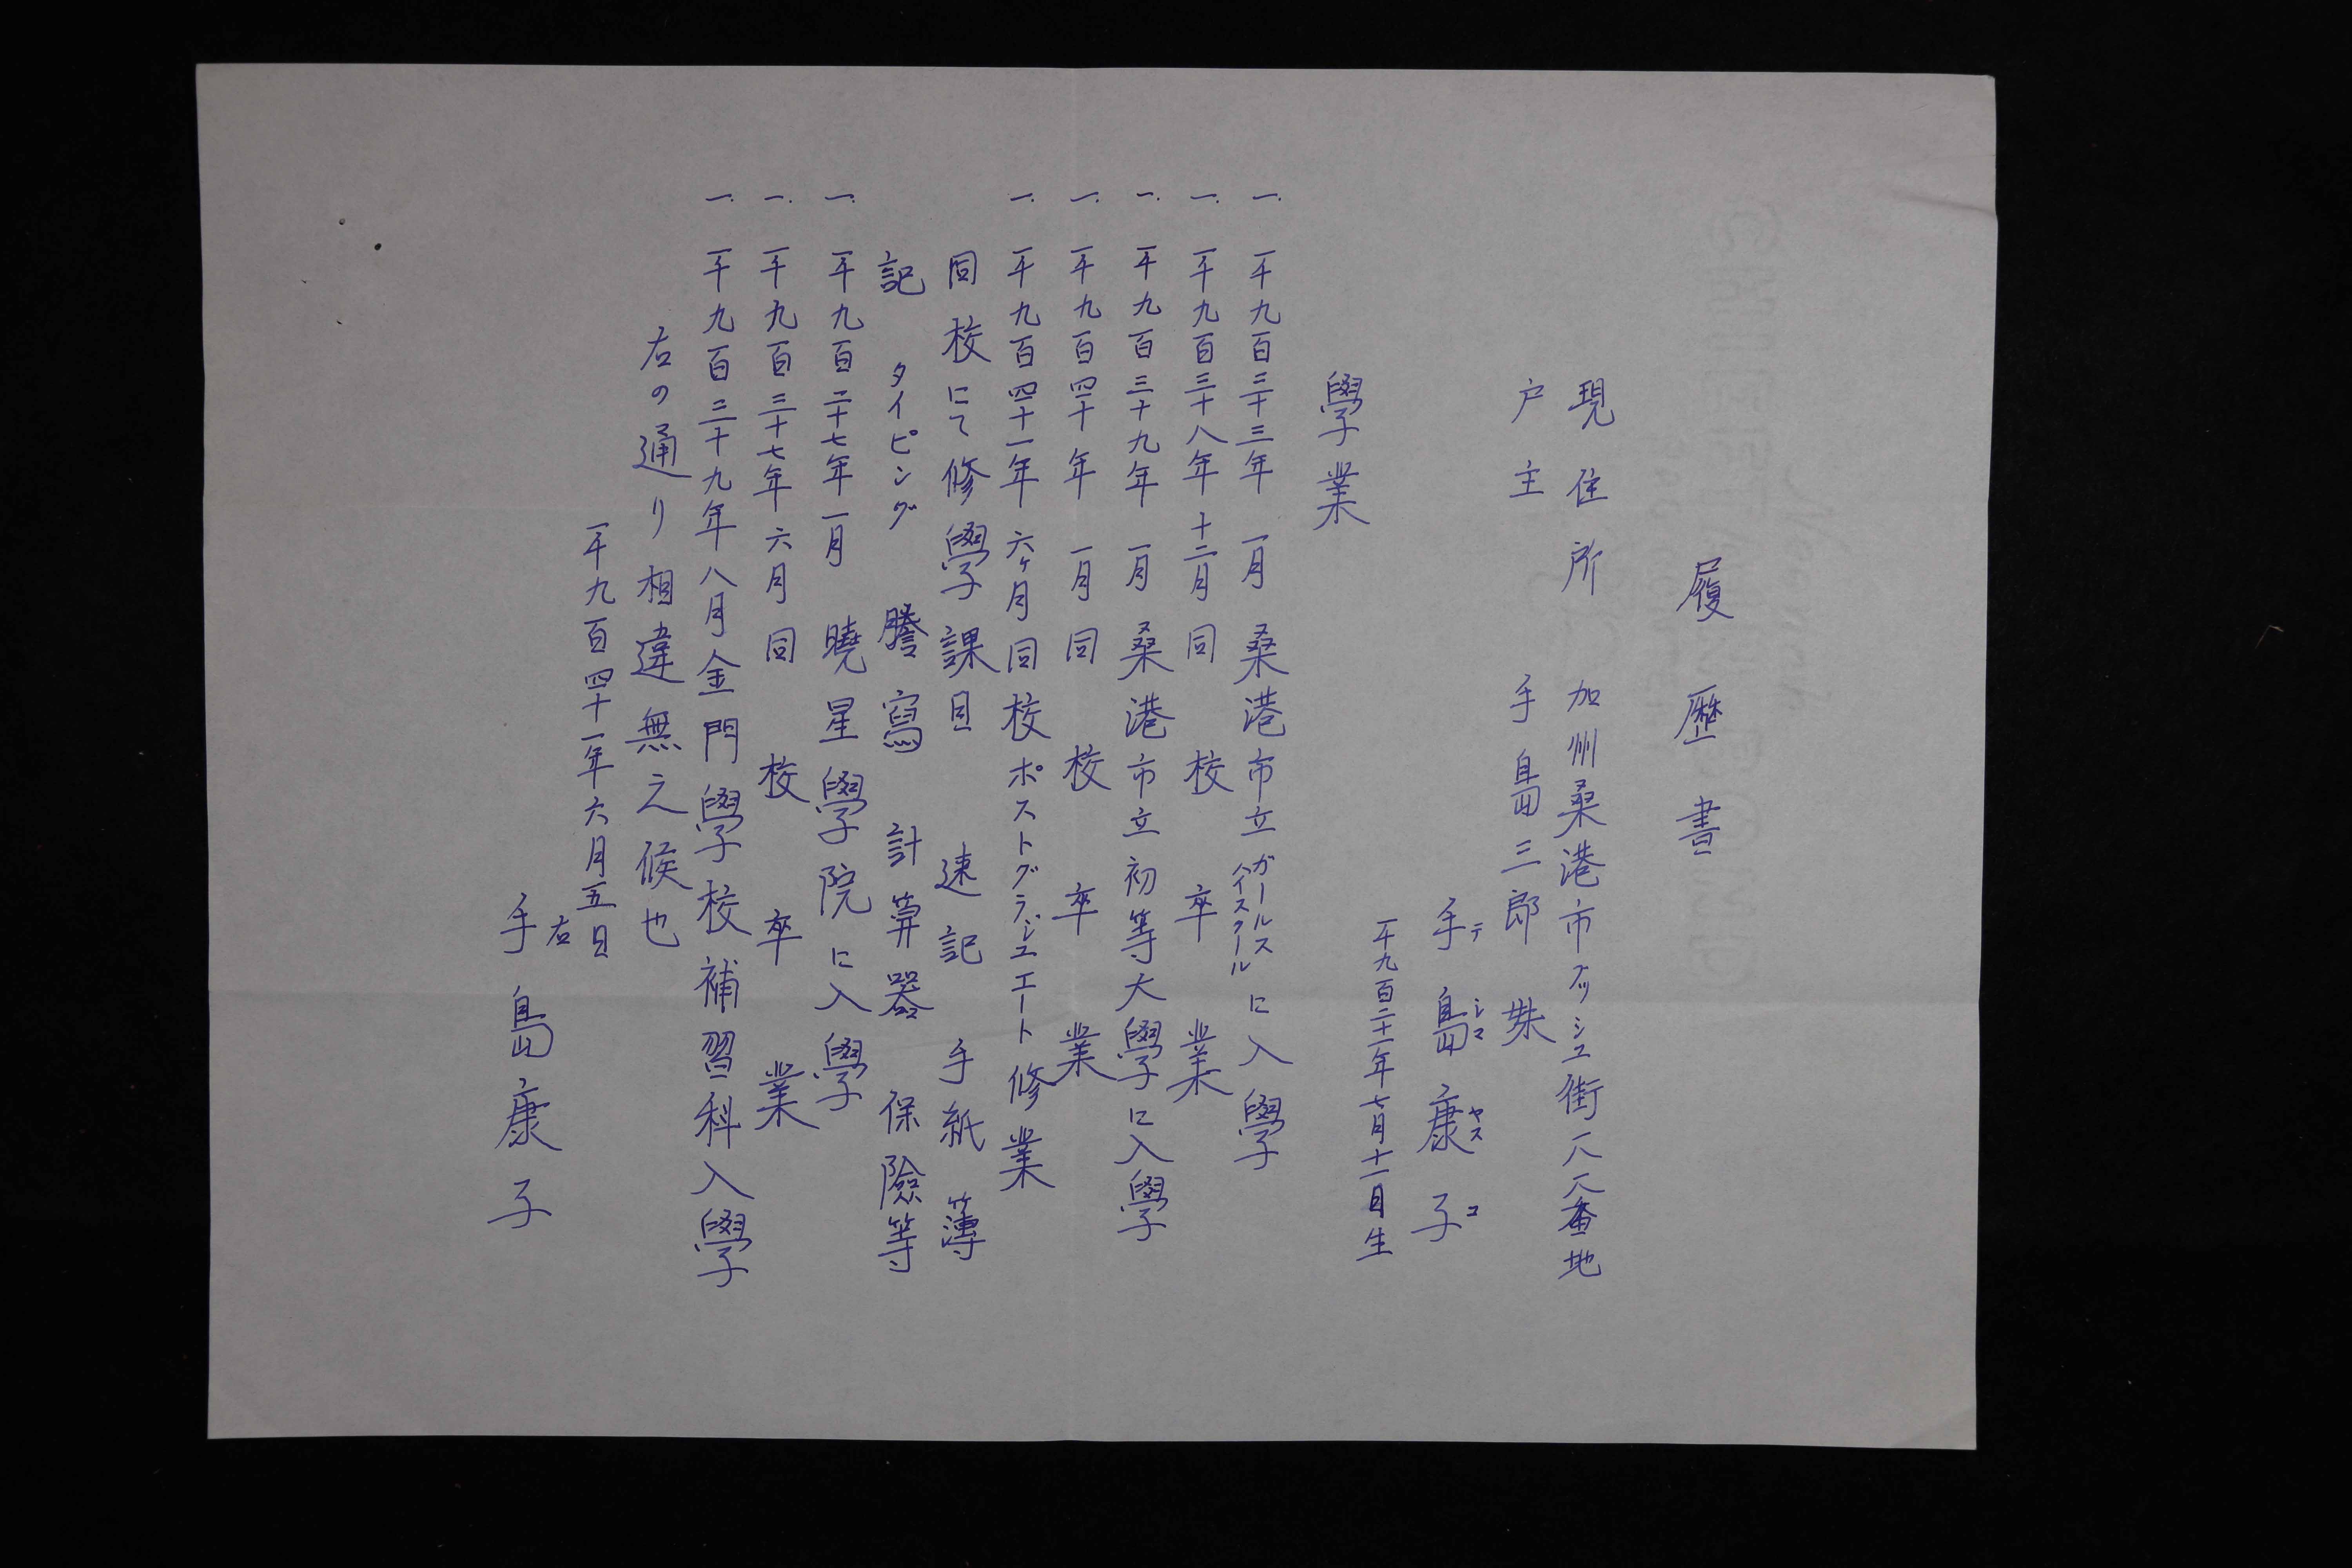 履歴書
現住所 加州桑港市ブッシュ街一八一八番地
戸主 手島三郎 妹
手島康子
テシマ ヤスコ
一千九百二十一年七月十一日生
學業
一、一千九百三十三年 一月 桑港市立ガールスハイスクールに入學
一、一千九百三十八年 十二月 同校卒業
一、一千九百三十九年 一月 桑港市立初等大學に入學
一、一千九百四十年 一月 同校卒業
一、一千九百四十一年 六ヶ月同校ポストグラジュエート修業
同校にて修學課目 速記 手紙 簿
記 タイピング 謄寫 計算器 保險等
一、一千九百二十七年一月 曉星學院に入學
一、一千九百三十七年六月 同校卒業
一、一千九百三十九年八月金門學校補習科入學
右の通り相違無之候也
一千九百四十一年六月五日
右
手島康子